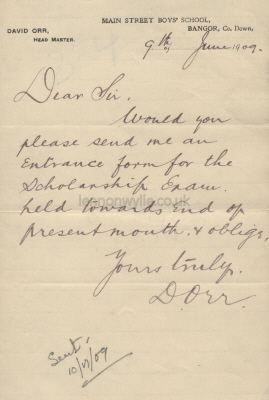 MAIN STREET BOYS' SCHOOL,
DAVID ORR,
HEAD MASTER.
BANGOR, Co. Down,
9th June 1909.
Dear Sir.
Would you
please send me an
Entrance form for the
Scholarship Exam.
held towards End of
present month, & oblige,
Yours truly.
D. Orr.
Sent
10/6/09
lennonwylie.co.uk